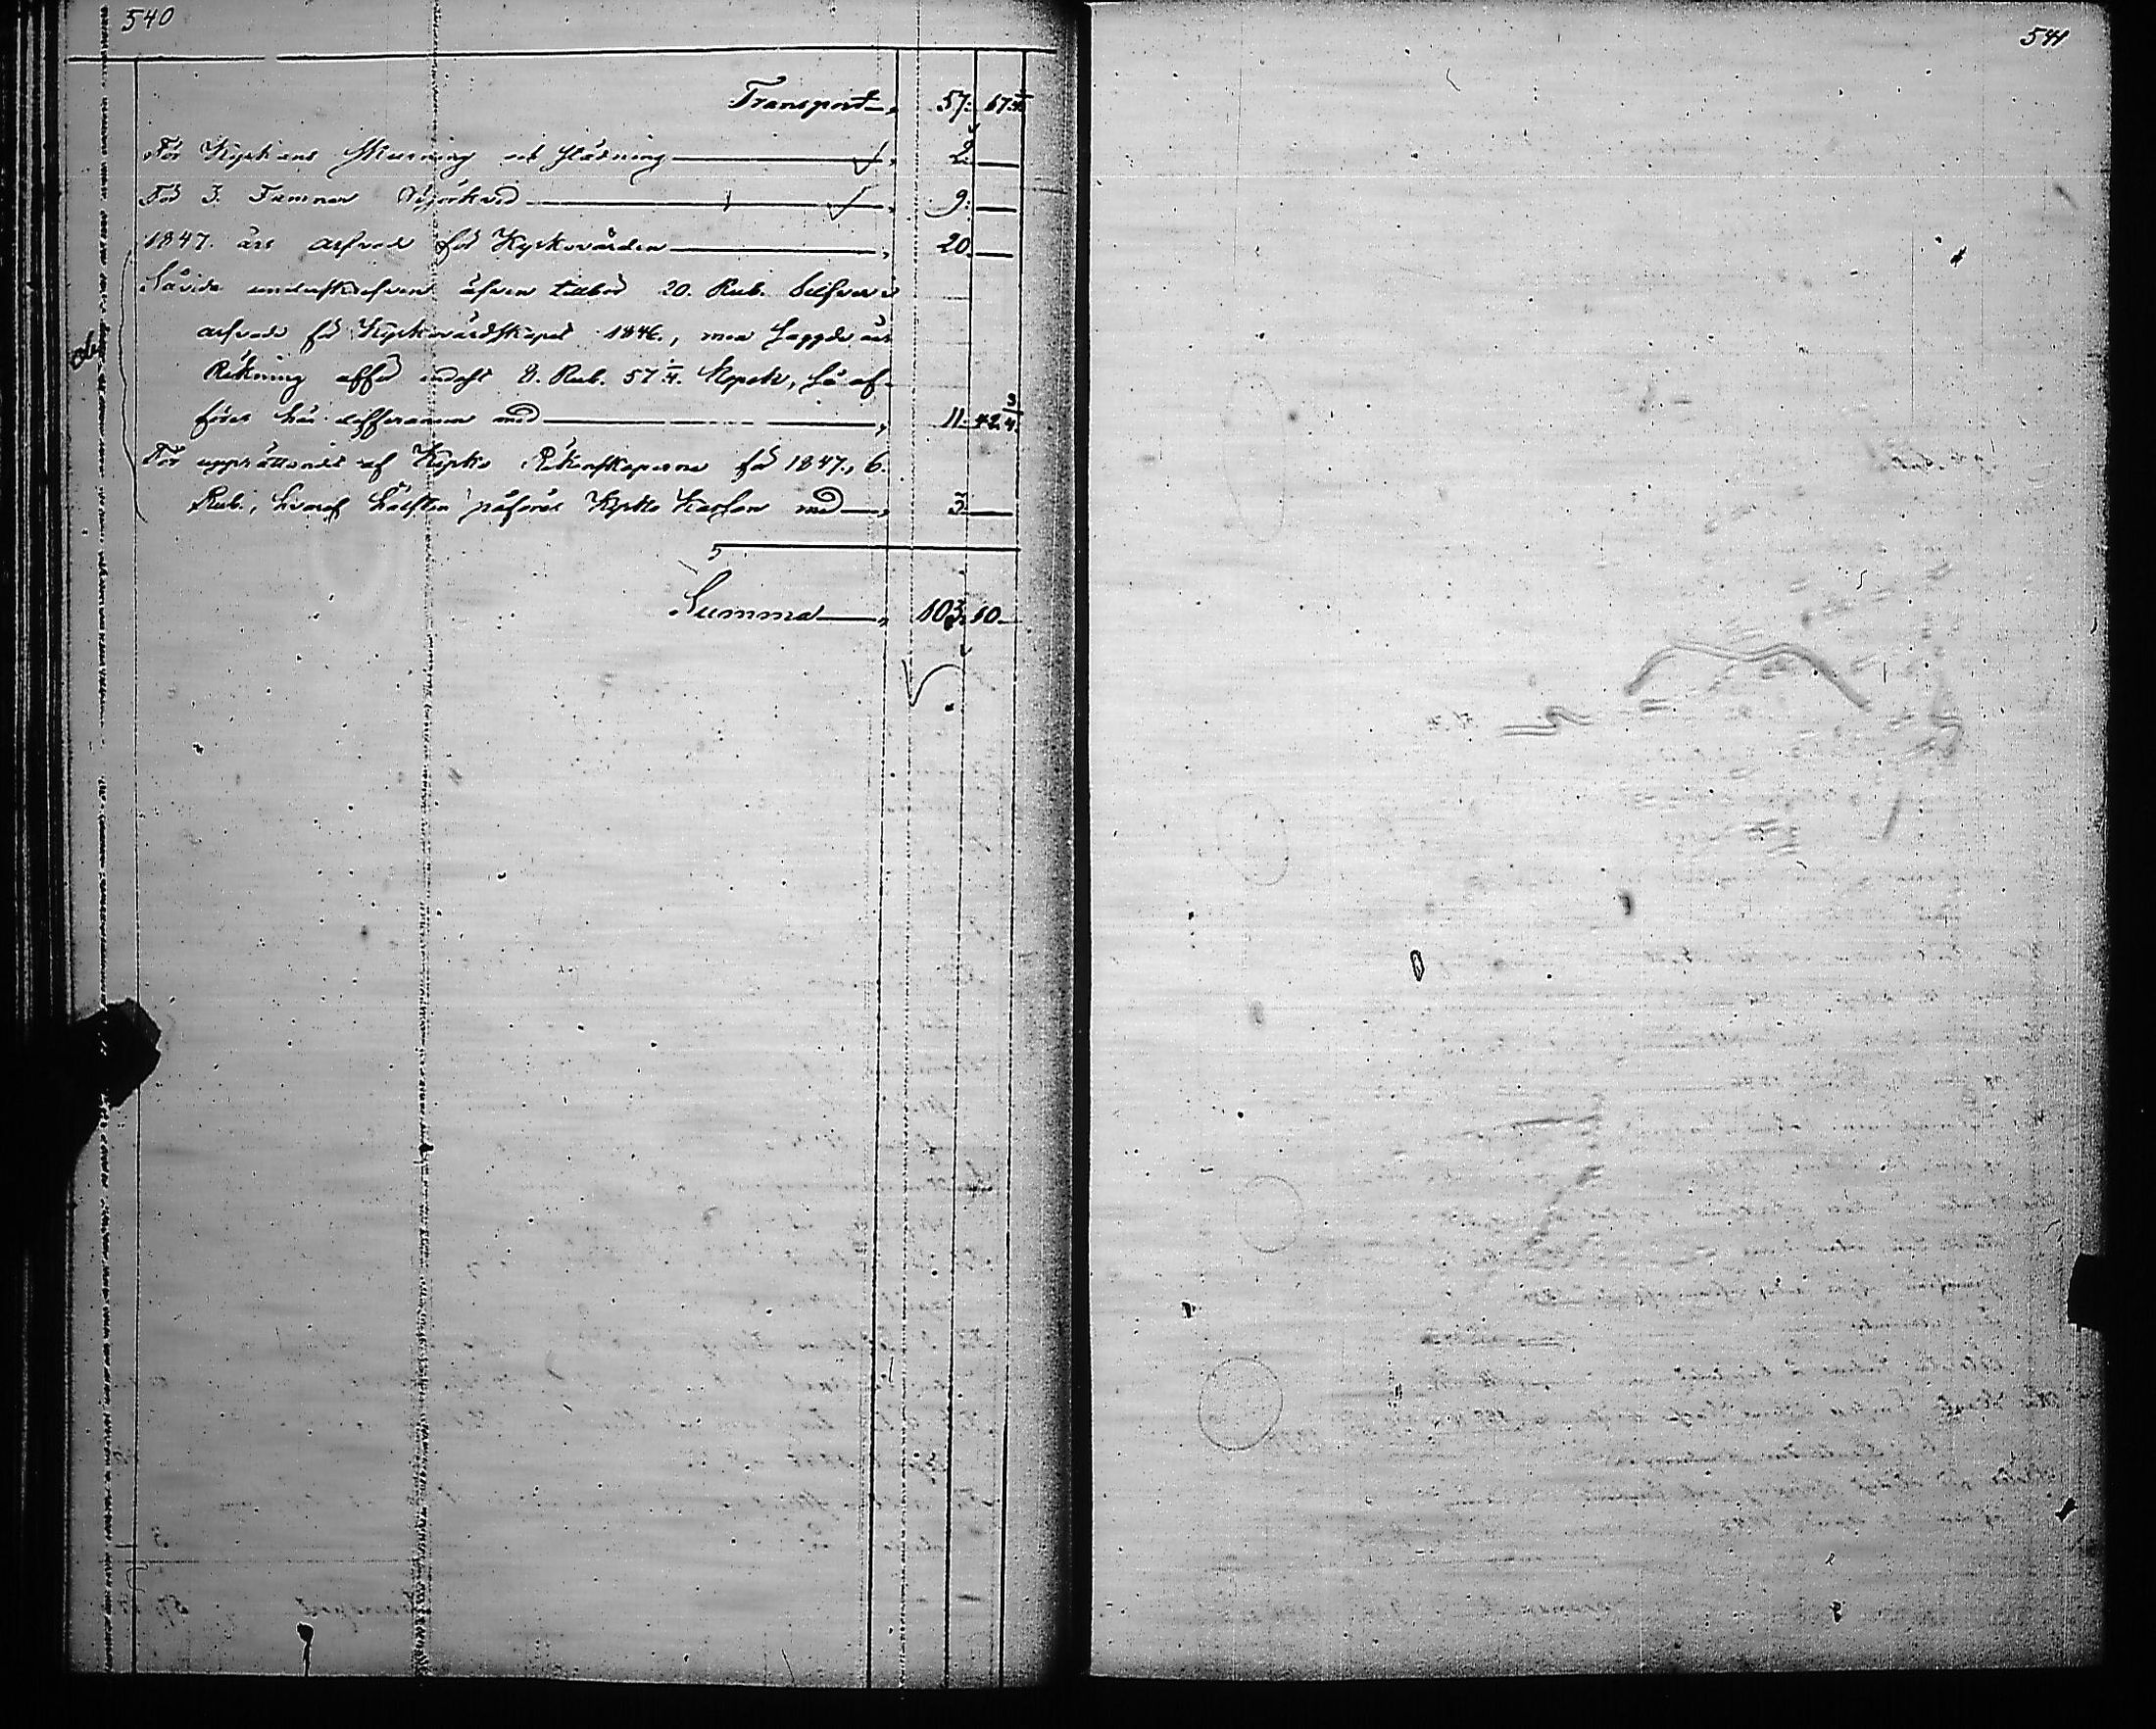 540
Transport 57. 67 1/4.
För Kyrkans skurning och städning 2.
För 3. Famnar Björkved 9.
1847. års arfvode för Kyrkovärden 20
Såvida undertecknad äfven tillkom 20. Rub. Silfver i
arfvode för Kyrkovärdskapet 1846., men sagde års
Räkning upptod endast 8. Rub. 57 1/4. Kopek, så af-
föres här differansen med 11. 42 3/4.
För upprättandet af Kyrko Räkenskaperne för 1847., 6.
Rub., hvaraf hälften påföres Kyrko Kassan med 3
Summa 103. 10.
541